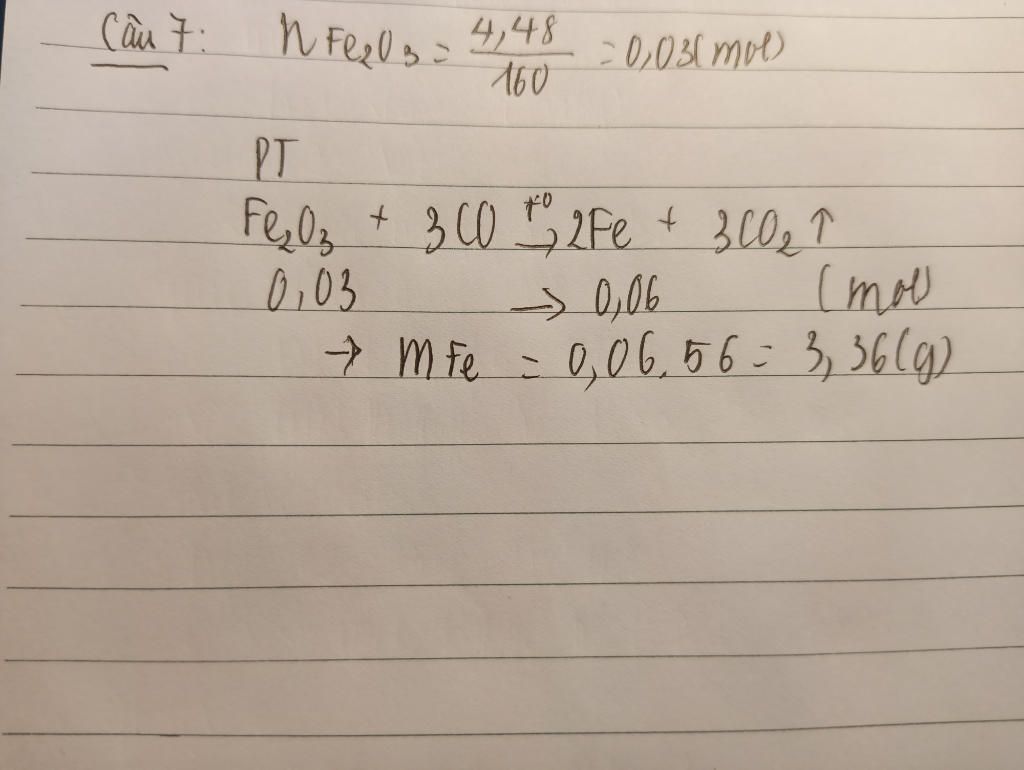 Câu 7: nFe₂O₃ = 4,48/160 = 0,03(mol)
PT
Fe₂O₃ + 3CO t⁰→ 2Fe + 3CO₂↑
0,03 → 0,06 (mol)
→ mFe = 0,06.56 = 3,36(g)